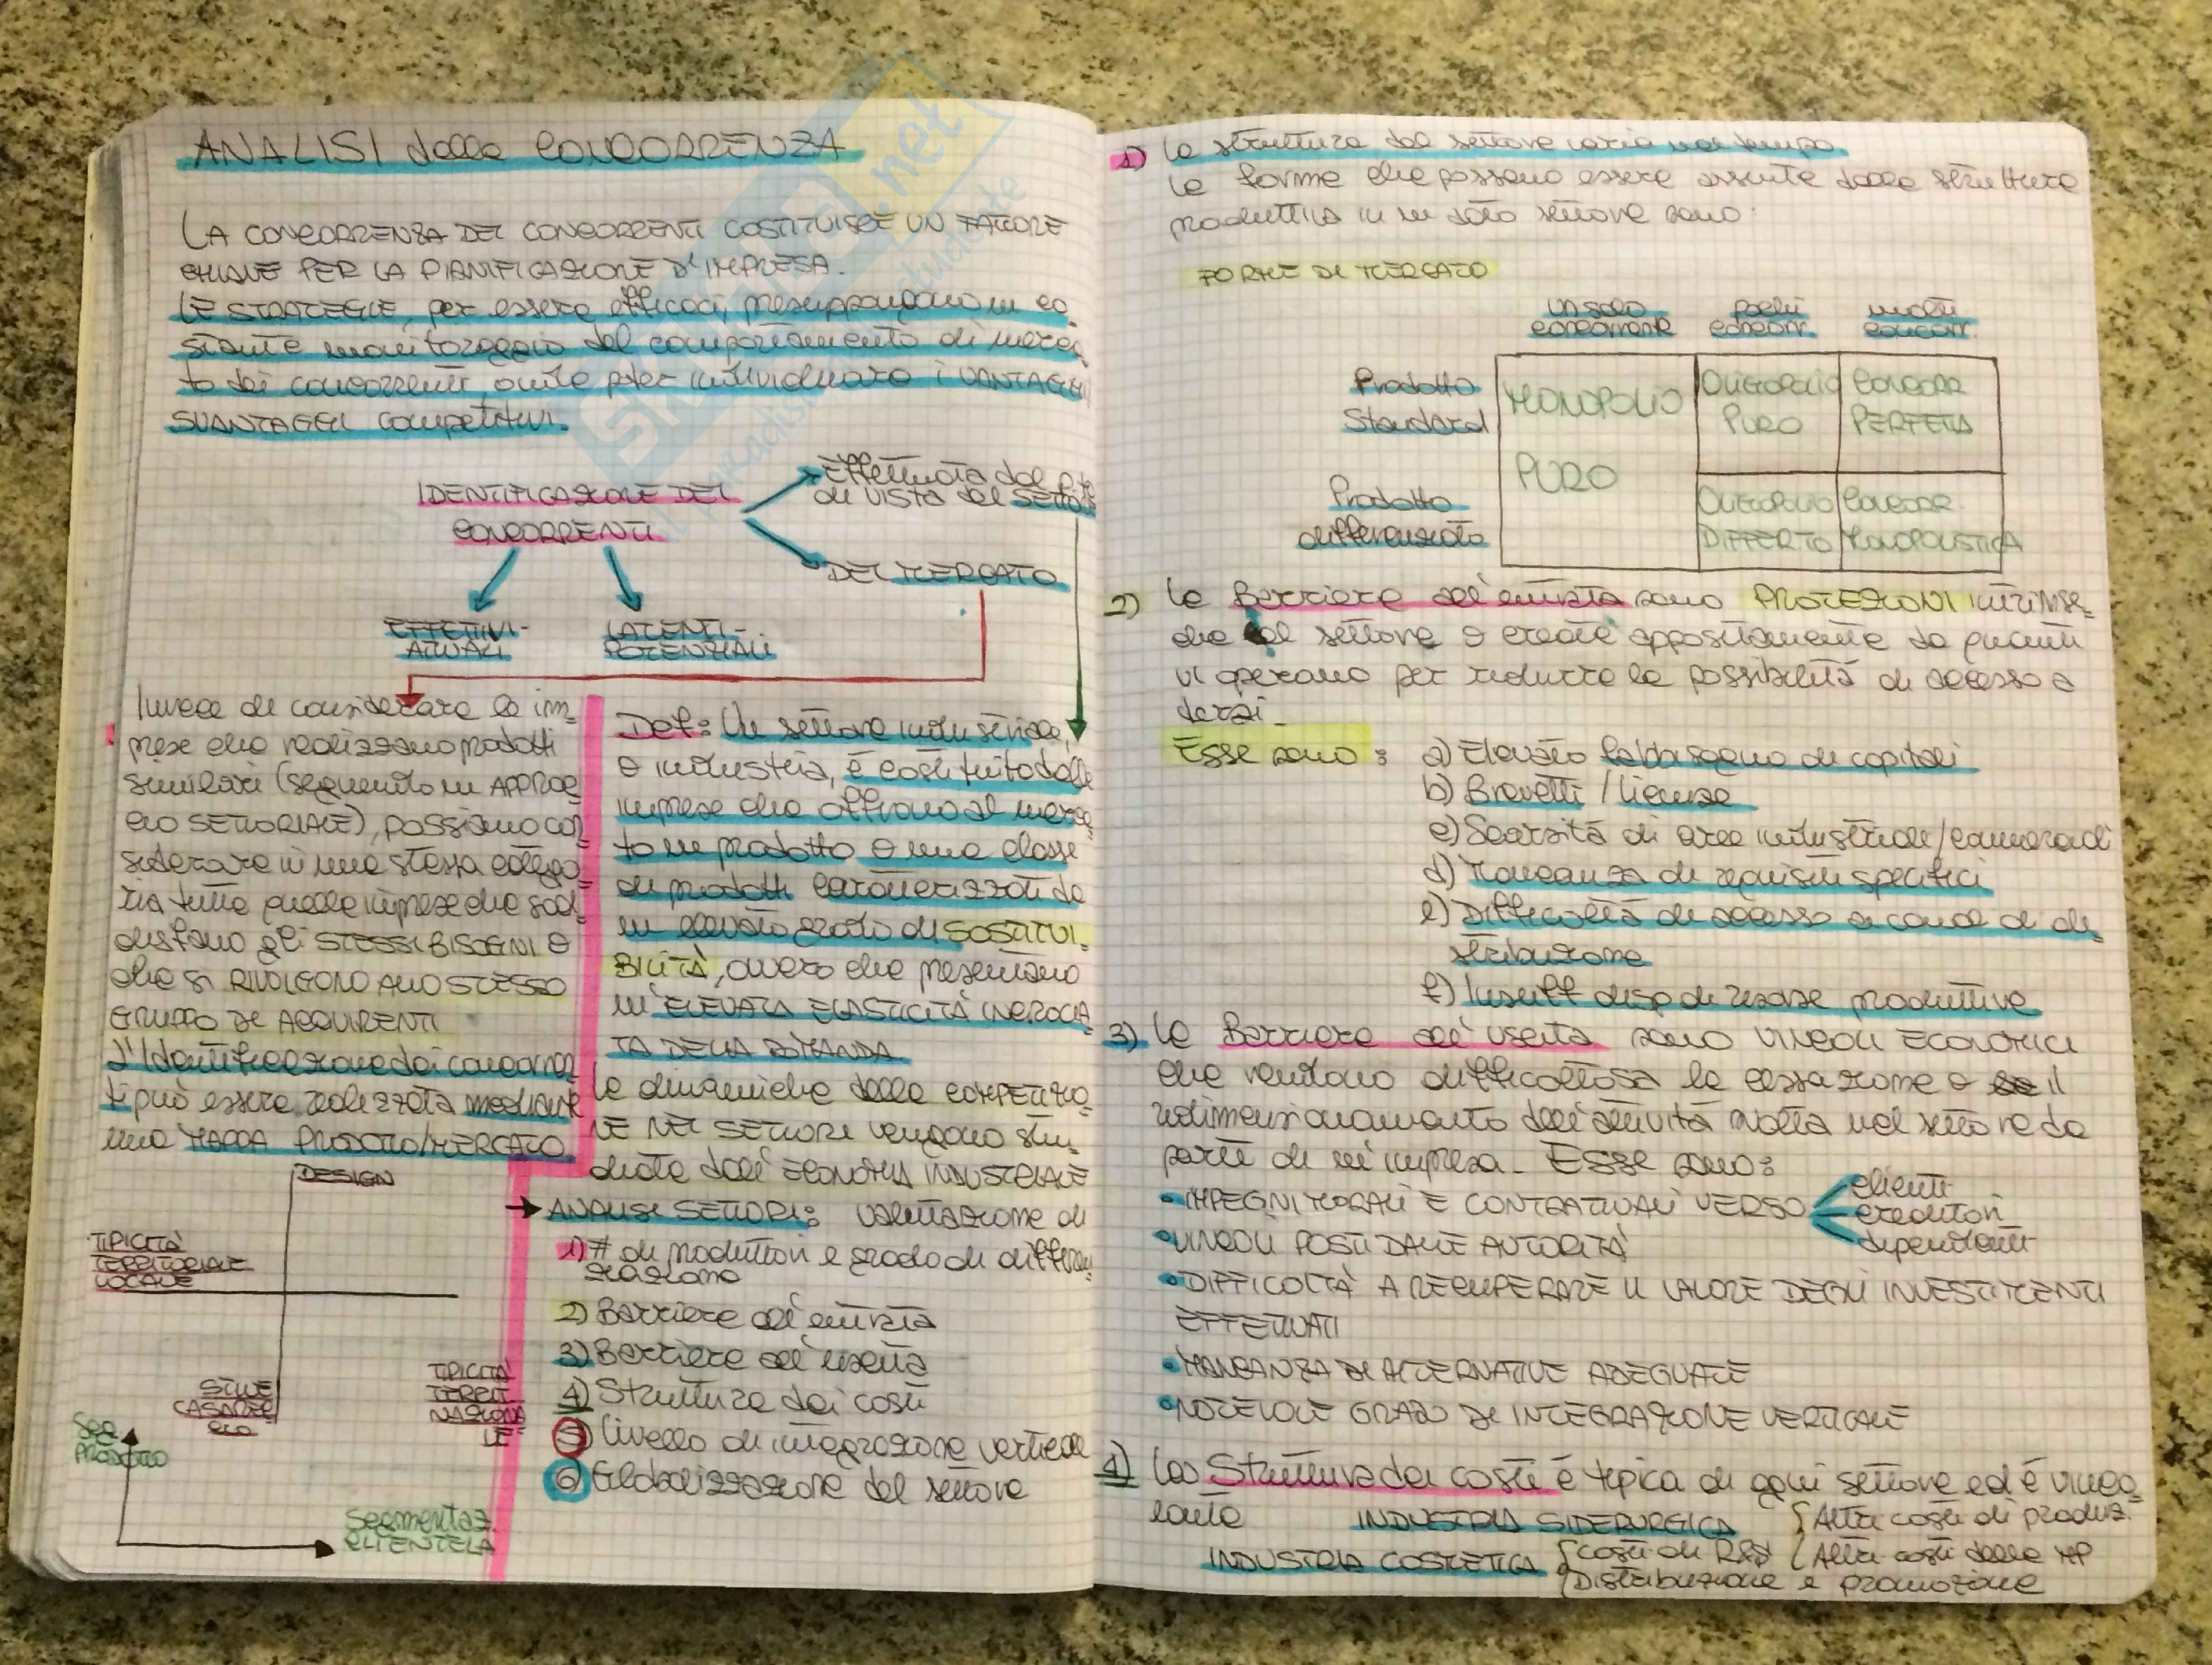 ANALISI della CONCORRENZA
LA CONCORRENZA DEI CONCORRENTI COSTITUISCE UN FATTORE
CHIAVE PER LA PIANIFICAZIONE D'IMPRESA.
LE STRATEGIE, per essere efficaci, presuppongono un co
stante monitoraggio del comportamento di merca
to dei concorrenti, onde poter individuare i VANTAGGI
SVANTAGGI competitivi.
IDENTIFICAZIONE DEI
CONCORRENTI
Effettuata dal p.to
di VISTA del SETTORE
DEL MERCATO
EFFETTIVI-
ATTUALI
LATENTI-
POTENZIALI
Invece di considerare le im-
prese che realizzano prodotti
similari (seguendo un APPROC
CIO SETTORIALE), possiamo con
siderare in una stessa catego-
ria tutte quelle imprese che sod-
disfano gli STESSI BISOGNI e
che si RIVOLGONO ALLO STESSO
GRUPPO DI ACQUIRENTI
L'Identificazione dei concorren
ti può essere realizzata mediante
una MAPPA PRODOTTO/MERCATO
DESIGN
TIPICITÀ
TERRITORIALE
LOCALE
STILE
CASARECCIO
TIPICITÀ
TERRIT.
NAZIONA
LE
Seg
PRODOTTO
Segmentaz.
CLIENTELA
Def: Un settore industriale,
o industria, è costituito dalle
imprese che offrono al merca-
to un prodotto o una classe
di prodotti caratterizzati da
un elevato grado di SOSTITUI-
BILITÀ, ovvero che presentano
un'ELEVATA ELASTICITÀ INCROCIA
TA DELLA DOMANDA
Le dinamiche della COMPETIZIO-
NE NEI SETTORI vengono stu-
diate dall'ECONOMIA INDUSTRIALE
ANALISI SETTORI: valutazione di
1) # di produttori e grado di differen
ziazione
2) Barriere all'entrata
3) Barriere all'uscita
4) Struttura dei costi
5) Livello di integrazione verticale
6) Globalizzazione del settore
1) La struttura del settore varia nel tempo.
Le forme che possono essere assunte dalla struttura
produttiva in un dato settore sono:
FORME DI MERCATO
un solo concorrente
pochi concorr.
molti concorr.
Prodotto
Standard
MONOPOLIO
PURO
OLIGOPOLIO
PURO
CONCORR
PERFETTA
Prodotto
differenziato
OLIGOPOLIO
DIFFER.TO
CONCORR.
MONOPOLISTICA
2) Le Barriere all'entrata sono PROTEZIONI intrinse-
che al settore o create appositamente da quanti
vi operano per ridurre le possibilità di accesso a
terzi.
Esse sono: a) Elevato fabbisogno di capitali
b) Brevetti / Licenze
c) Scarsità di aree industriali/commerciali
d) Mancanza di requisiti specifici
e) Difficoltà di accesso a canali di di-
stribuzione
f) Insuff disp di risorse produttive
3) Le Barriere all'uscita sono VINCOLI ECONOMICI
che rendono difficoltosa la cessazione o il
ridimensionamento dell'attività svolta nel settore da
parte di un'impresa. Esse sono:
• IMPEGNI MORALI E CONTRATTUALI VERSO
clienti
creditori
dipendenti
• VINCOLI POSTI DALLE AUTORITÀ
• DIFFICOLTÀ A RECUPERARE IL VALORE DEGLI INVESTIMENTI
EFFETTUATI
• MANCANZA DI ALTERNATIVE ADEGUATE
• NOTEVOLE GRADO DI INTEGRAZIONE VERTICALE
4) La Struttura dei costi è tipica di ogni settore ed è vinco-
lante
INDUSTRIA SIDERURGICA { Alti costi di produz.
{ Alti costi delle MP
INDUSTRIA COSMETICA { costi di R&S
{ Distribuzione e promozione